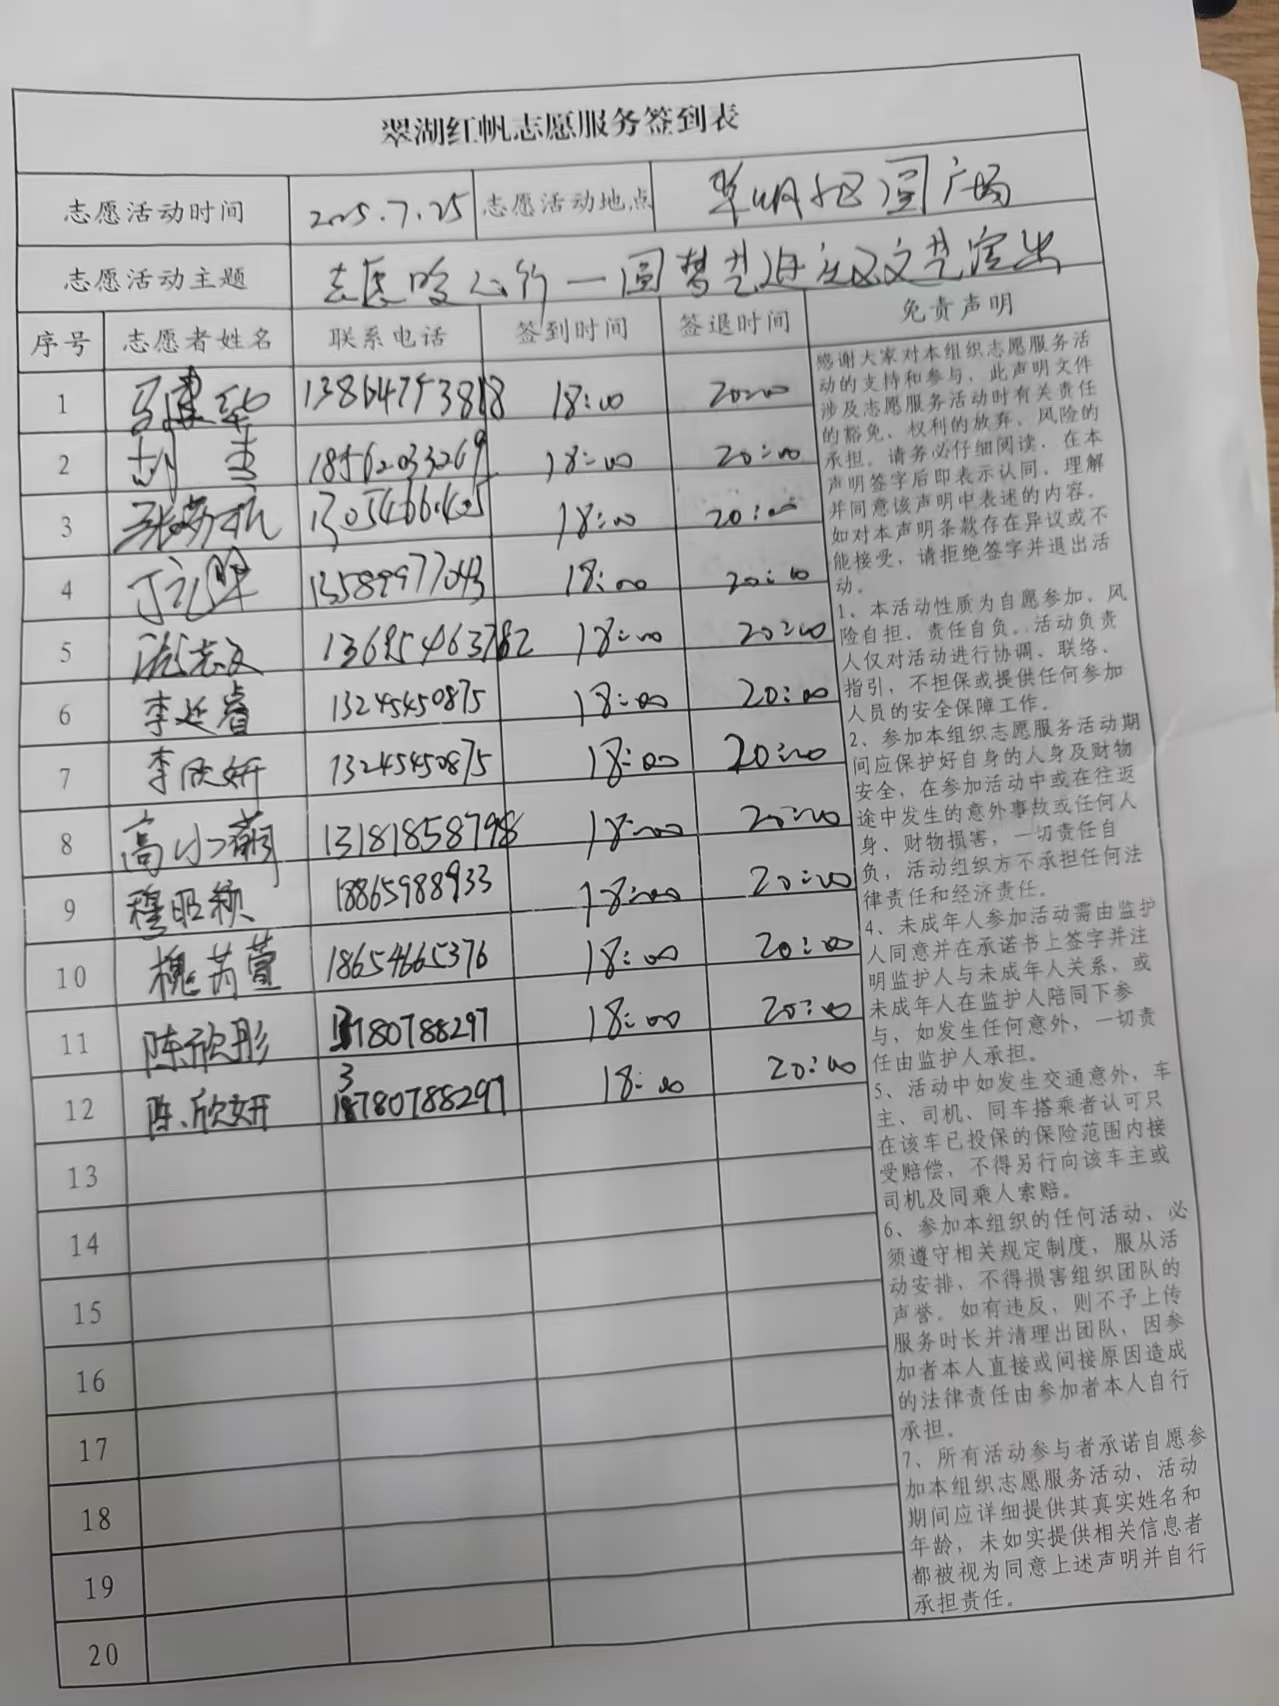 翠湖红帆志愿服务签到表
志愿活动时间 2025.7.25 志愿活动地点 翠湖社区圆广场
志愿活动主题 志愿暖心行一圆梦艺进社区文艺演出
序号 志愿者姓名 联系电话 签到时间 签退时间 免责声明
1 13864753818 18:00 20:00
2 胡 18562033269 18:00 20:00
3 18:00 20:00
4 13589977043 18:00 20:00
5 志文 18:00 20:00
6 李延睿 13245450875 18:00 20:00
7 李欣妍 13245450875 18:00 20:00
8 高小蘅 13181858798 18:00 20:00
9 穆昭颖 18865988933 18:00 20:00
10 槐芮萱 18654665376 18:00 20:00
11 陈欣彤 13780788297 18:00 20:00
12 陈欣妍 13780788297 18:00 20:00
13
14
15
16
17
18
19
20
感谢大家对本组织志愿服务活
动的支持和参与，此声明文件
涉及志愿服务活动时有关责任
的豁免、权利的放弃、风险的
承担。请务必仔细阅读，在本
声明签字后即表示认同，理解
并同意该声明中表述的内容。
如对本声明条款存在异议或不
能接受，请拒绝签字并退出活
动。
1、本活动性质为自愿参加，风
险自担、责任自负。活动负责
人仅对活动进行协调、联络、
指引，不担保或提供任何参加
人员的安全保障工作。
2、参加本组织志愿服务活动期
间应保护好自身的人身及财物
安全，在参加活动中或在往返
途中发生的意外事故或任何人
身、财物损害，一切责任自
负，活动组织方不承担任何法
律责任和经济责任。
4、未成年人参加活动需由监护
人同意并在承诺书上签字并注
明监护人与未成年人关系，或
未成年人在监护人陪同下参
与，如发生任何意外，一切责
任由监护人承担。
5、活动中如发生交通意外，车
主、司机、同车搭乘者认可只
在该车已投保的保险范围内接
受赔偿，不得另行向该车主或
司机及同乘人索赔。
6、参加本组织的任何活动，必
须遵守相关规定制度，服从活
动安排，不得损害组织团队的
声誉。如有违反，则不予上传
服务时长并清理出团队，因参
加者本人直接或间接原因造成
的法律责任由参加者本人自行
承担。
7、所有活动参与者承诺自愿参
加本组织志愿服务活动，活动
期间应详细提供其真实姓名和
年龄，未如实提供相关信息者
都被视为同意上述声明并自行
承担责任。